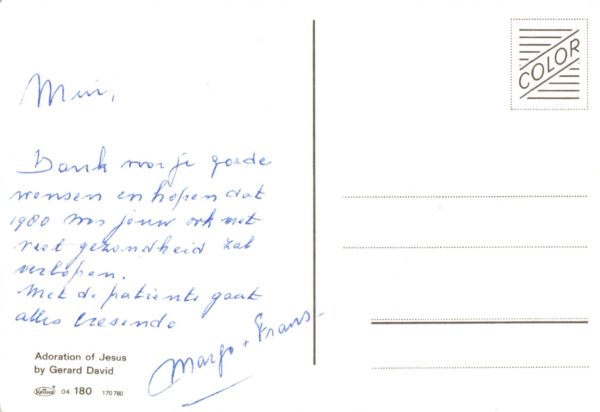 COLOR
Dank voor je goede
wensen en hopen dat
1980 voor jouw ook met
veel gezondheid zal
verlopen.
Met de patiente gaat
alles cresendo
Margo + Frans
Adoration of Jesus
by Gerard David
04. 180 170780